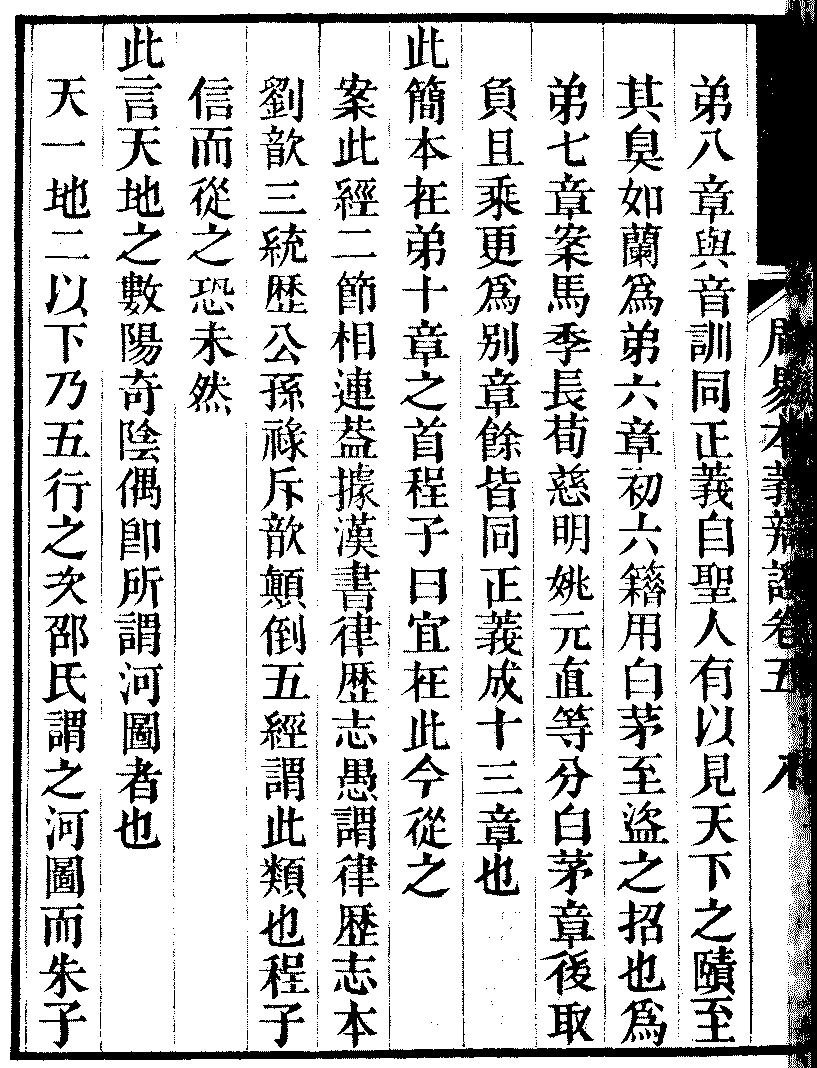 周易本義辯證卷五
弟八章與音訓同正義自聖人有以見天下之賾至
其臭如蘭爲弟六章初六籍用白茅至盜之招也爲
弟七章案馬季長荀慈明姚元直等分白茅章後取
負且乘更爲别章餘皆同正義成十三章也
此簡本在弟十章之首程子曰宜在此今從之
案此經二節相連葢據漢書律歷志愚謂律歷志本
劉歆三統歷公孫祿斥歆顛倒五經謂此類也程子
信而從之恐未然
此言天地之數陽奇陰偶即所謂河圖者也
天一地二以下乃五行之次邵氏謂之河圖而朱子